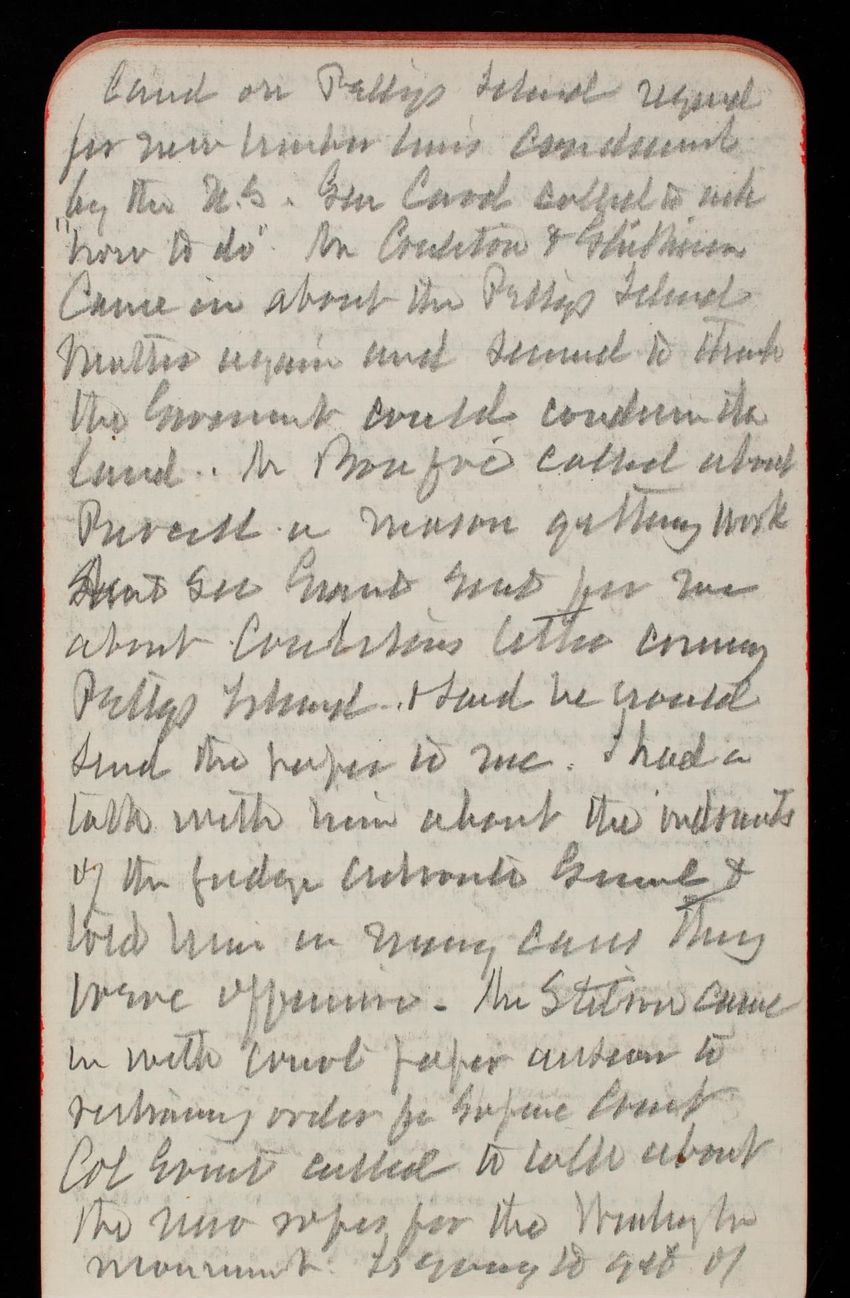 land on Pettys Island required
for new harbor lines condemned
by the U.S. Gen Card called to ask
"how to do". Mr Coulston &
Came in about the Pettys Island
matter again and seemed to think
the Government could condemn the
land.. Mr called about
Purcell a mason getting work
Sec Grant sent for me
about Coulstons letter coming
Pettys Island. & said he would
send the paper to me. I had a
talk with him about the
of the Judge Advocate General &
told him in many cases they
were offensive - Mr Stetson came
in with court paper answer to
restraining order for Supreme Court
Col Grant called to talk about
the new ropes for the Washington
monument. Is going to get of